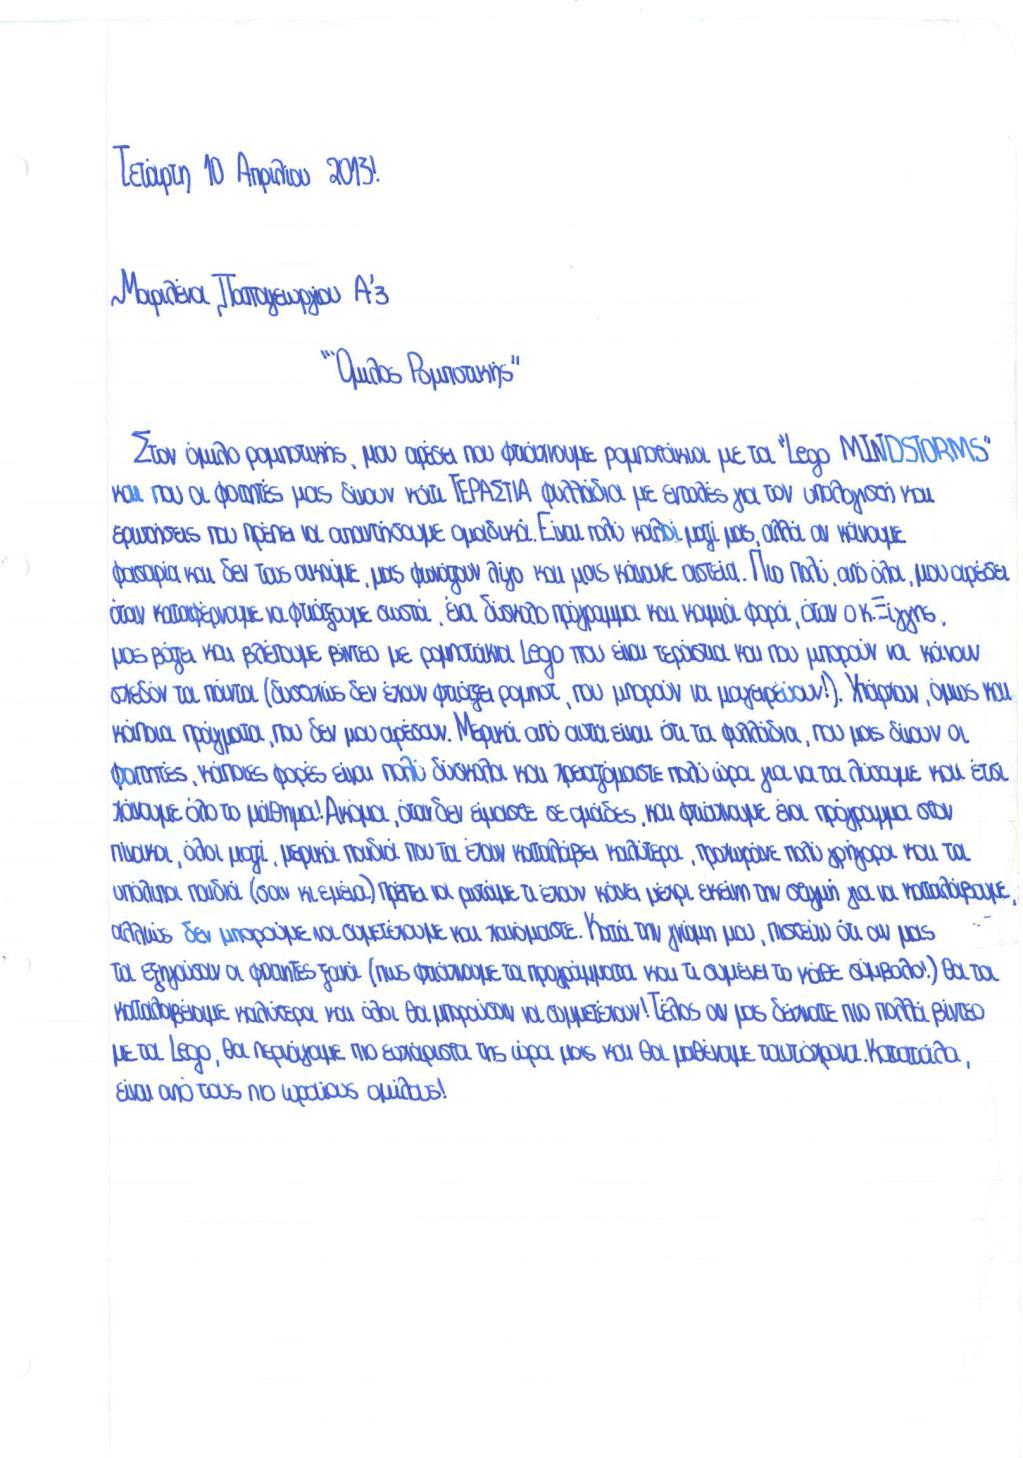 Τετάρτη 10 Απριλίου 2013!
Μαριλένα Παπαγεωργίου Α'3
"Όμιλος Ρομποτικής"
Στον όμιλο ρομποτικής, μου αρέσει που φτιάχνουμε ρομποτάκια με τα "Lego MINDSTORMS"
και που οι φοιτητές μας δίνουν κάτι ΤΕΡΑΣΤΙΑ φυλλάδια με εντολές για τον υπολογιστή και
ερωτήσεις που πρέπει να απαντήσουμε ομαδικά. Είναι πολύ καλοί μαζί μας, αλλά αν κάνουμε
φασαρία και δεν τους ακούμε, μας φωνάζουν λίγο και μας κάνουνε αστεία. Πιο πολύ, από όλα, μου αρέσει
όταν καταφέρνουμε να φτιάξουμε σωστά, ένα δύσκολο πρόγραμμα και καμιά φορά, όταν ο κ. Ξίγγης,
μας βάζει και βλέπουμε βίντεο με ρομποτάκια Lego που είναι τεράστια και που μπορούν να κάνουν
σχεδόν τα πάντα (δυστυχώς δεν έχουν φτιάξει ρομπότ, που μπορούν να μαγειρεύουν!). Υπάρχουν, όμως και
κάποια πράγματα, που δεν μου αρέσουν. Μερικά από αυτά είναι ότι τα φυλλάδια, που μας δίνουν οι
φοιτητές, κάποιες φορές είναι πολύ δύσκολα και χρειαζόμαστε πολύ ώρα για να τα λύσουμε και έτσι
χάνουμε όλο το μάθημα! Ακόμα, όταν δεν είμαστε σε ομάδες, και φτιάχνουμε ένα πρόγραμμα στον
πίνακα, όλοι μαζί, μερικά παιδιά που τα έχουν καταλάβει καλύτερα, προχωράνε πολύ γρήγορα και τα
υπόλοιπα παιδιά (σαν κι εμένα) πρέπει να ρωτάμε τι έχουν κάνει μέχρι εκείνη την στιγμή για να καταλάβουμε,
αλλιώς δεν μπορούμε να συμετέχουμε και χανόμαστε. Κατά την γνώμη μου, πιστεύω ότι αν μας
τα εξηγούσαν οι φοιτητές ξανά (πως φτιάχνουμε τα προγράμματα και τι σημαίνει το κάθε σύμβολο!) θα τα
καταλαβαίναμε καλύτερα και όλοι θα μπορούσαν να συμμετέχουν! Τέλος αν μας δείχνατε πιο πολλά βίντεο
με τα Lego, θα περνάγαμε πιο ευχάριστα της ώρα μας και θα μαθέναμε ταυτόχρονα. Κατατάλα,
είναι από τους πιο ωραίους ομίλους!